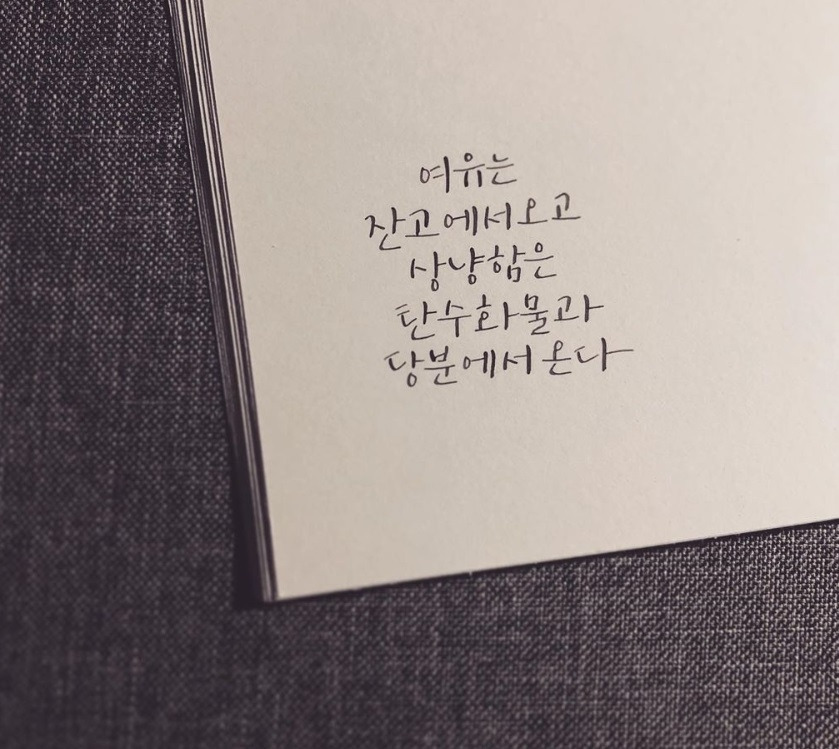 여유는
잔고에서 오고
상냥함은
탄수화물과
당분에서 온다